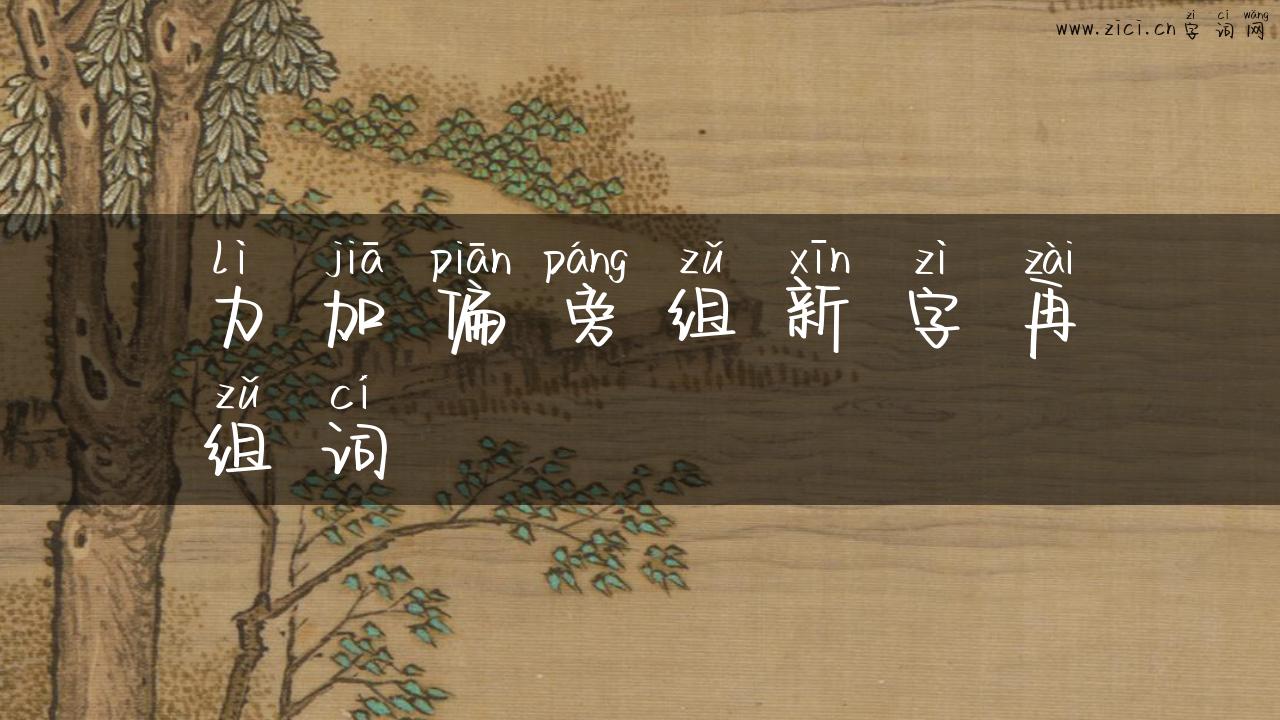 zì cí wǎng
www.zici.cn 字词网
lì jiā piān páng zǔ xīn zì zài
力加偏旁组新字再
zǔ cí
组词